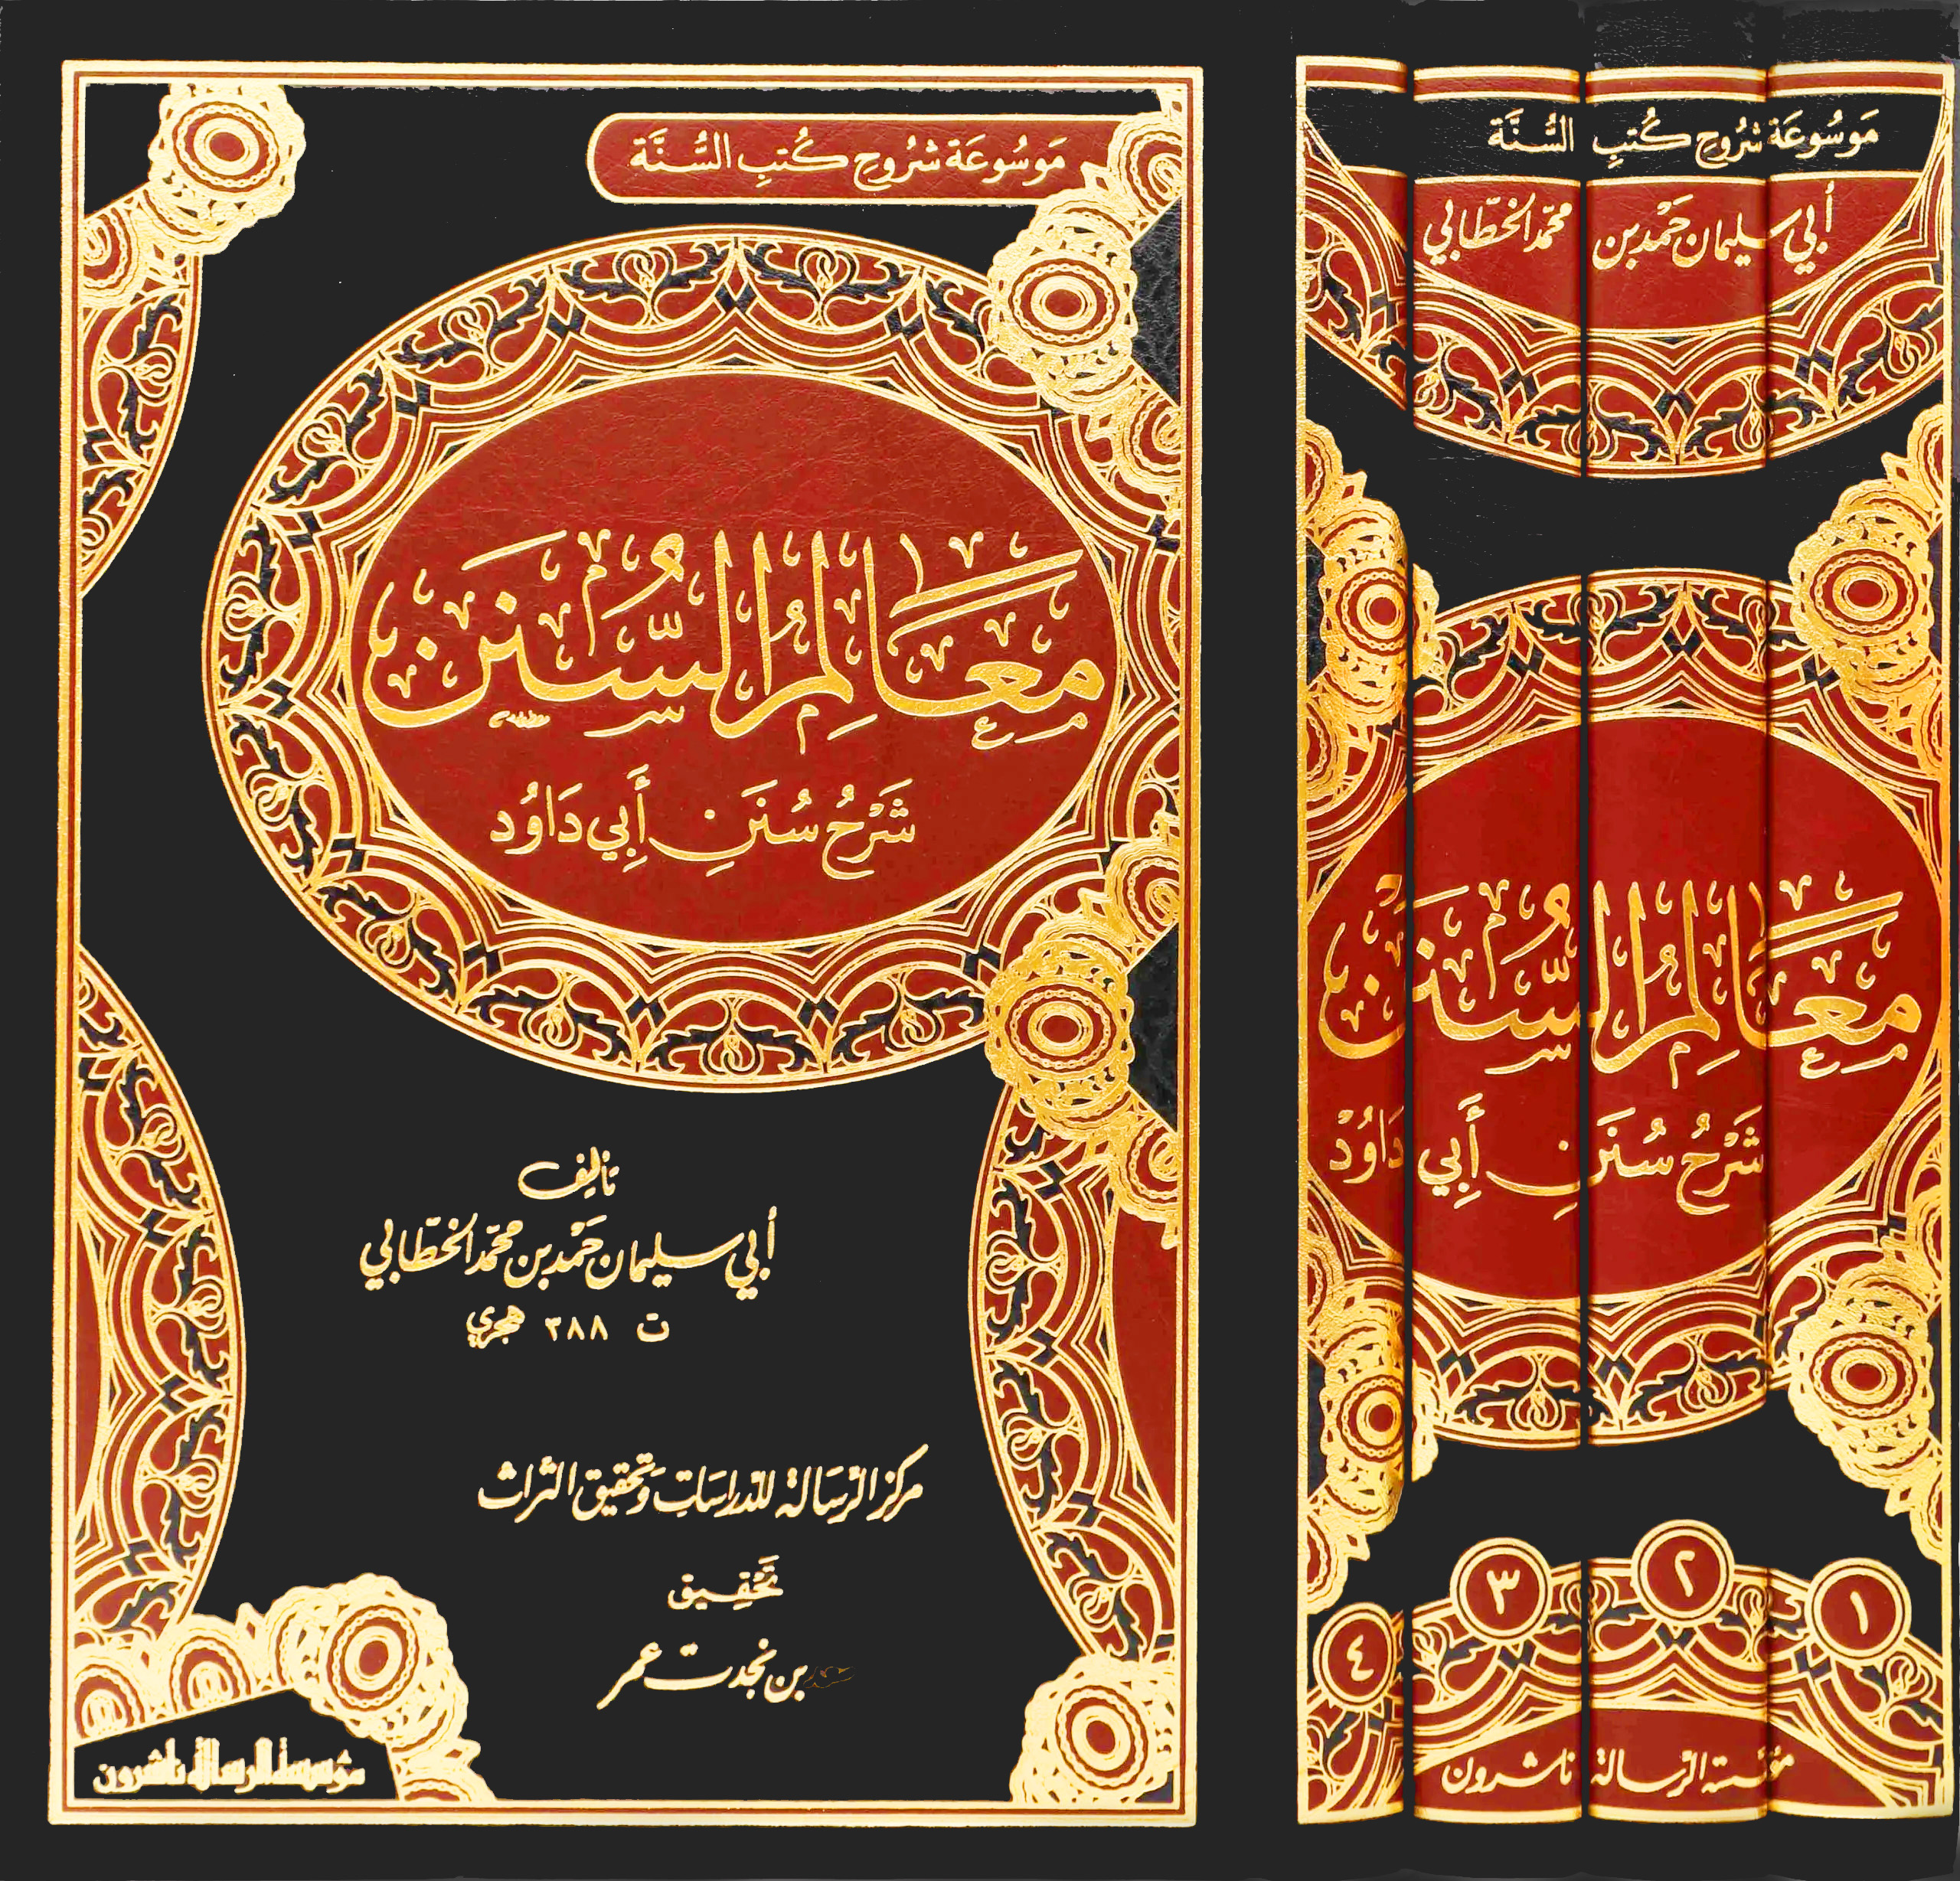 مَوسُوعَة شرُوحِ كُتبِ السُّنَّة
مَعَالِمُ السُّنَن
شَرْحُ سُنَنِ أَبِي دَاوُد
تأليف
أبي سليمان حَمْد بن محمّد الخطّابي
ت ٣٨٨ هجري
مركز الرّسَالة للدّراسَاتِ وَتحقيق التّراث
تَحْقِيق
بن نجدت عمر
مؤسسة الرسالة ناشرون
مَوسُوعَة شرُوحِ كُتبِ السُّنَّة
أبي سليمان حَمْد بن محمّد الخطّابي
مَعَالِمُ السُّنَن
شَرْحُ سُنَنِ أَبِي دَاوُد
١ ٢ ٣ ٤
مؤسّسة الرّسالة ناشرون